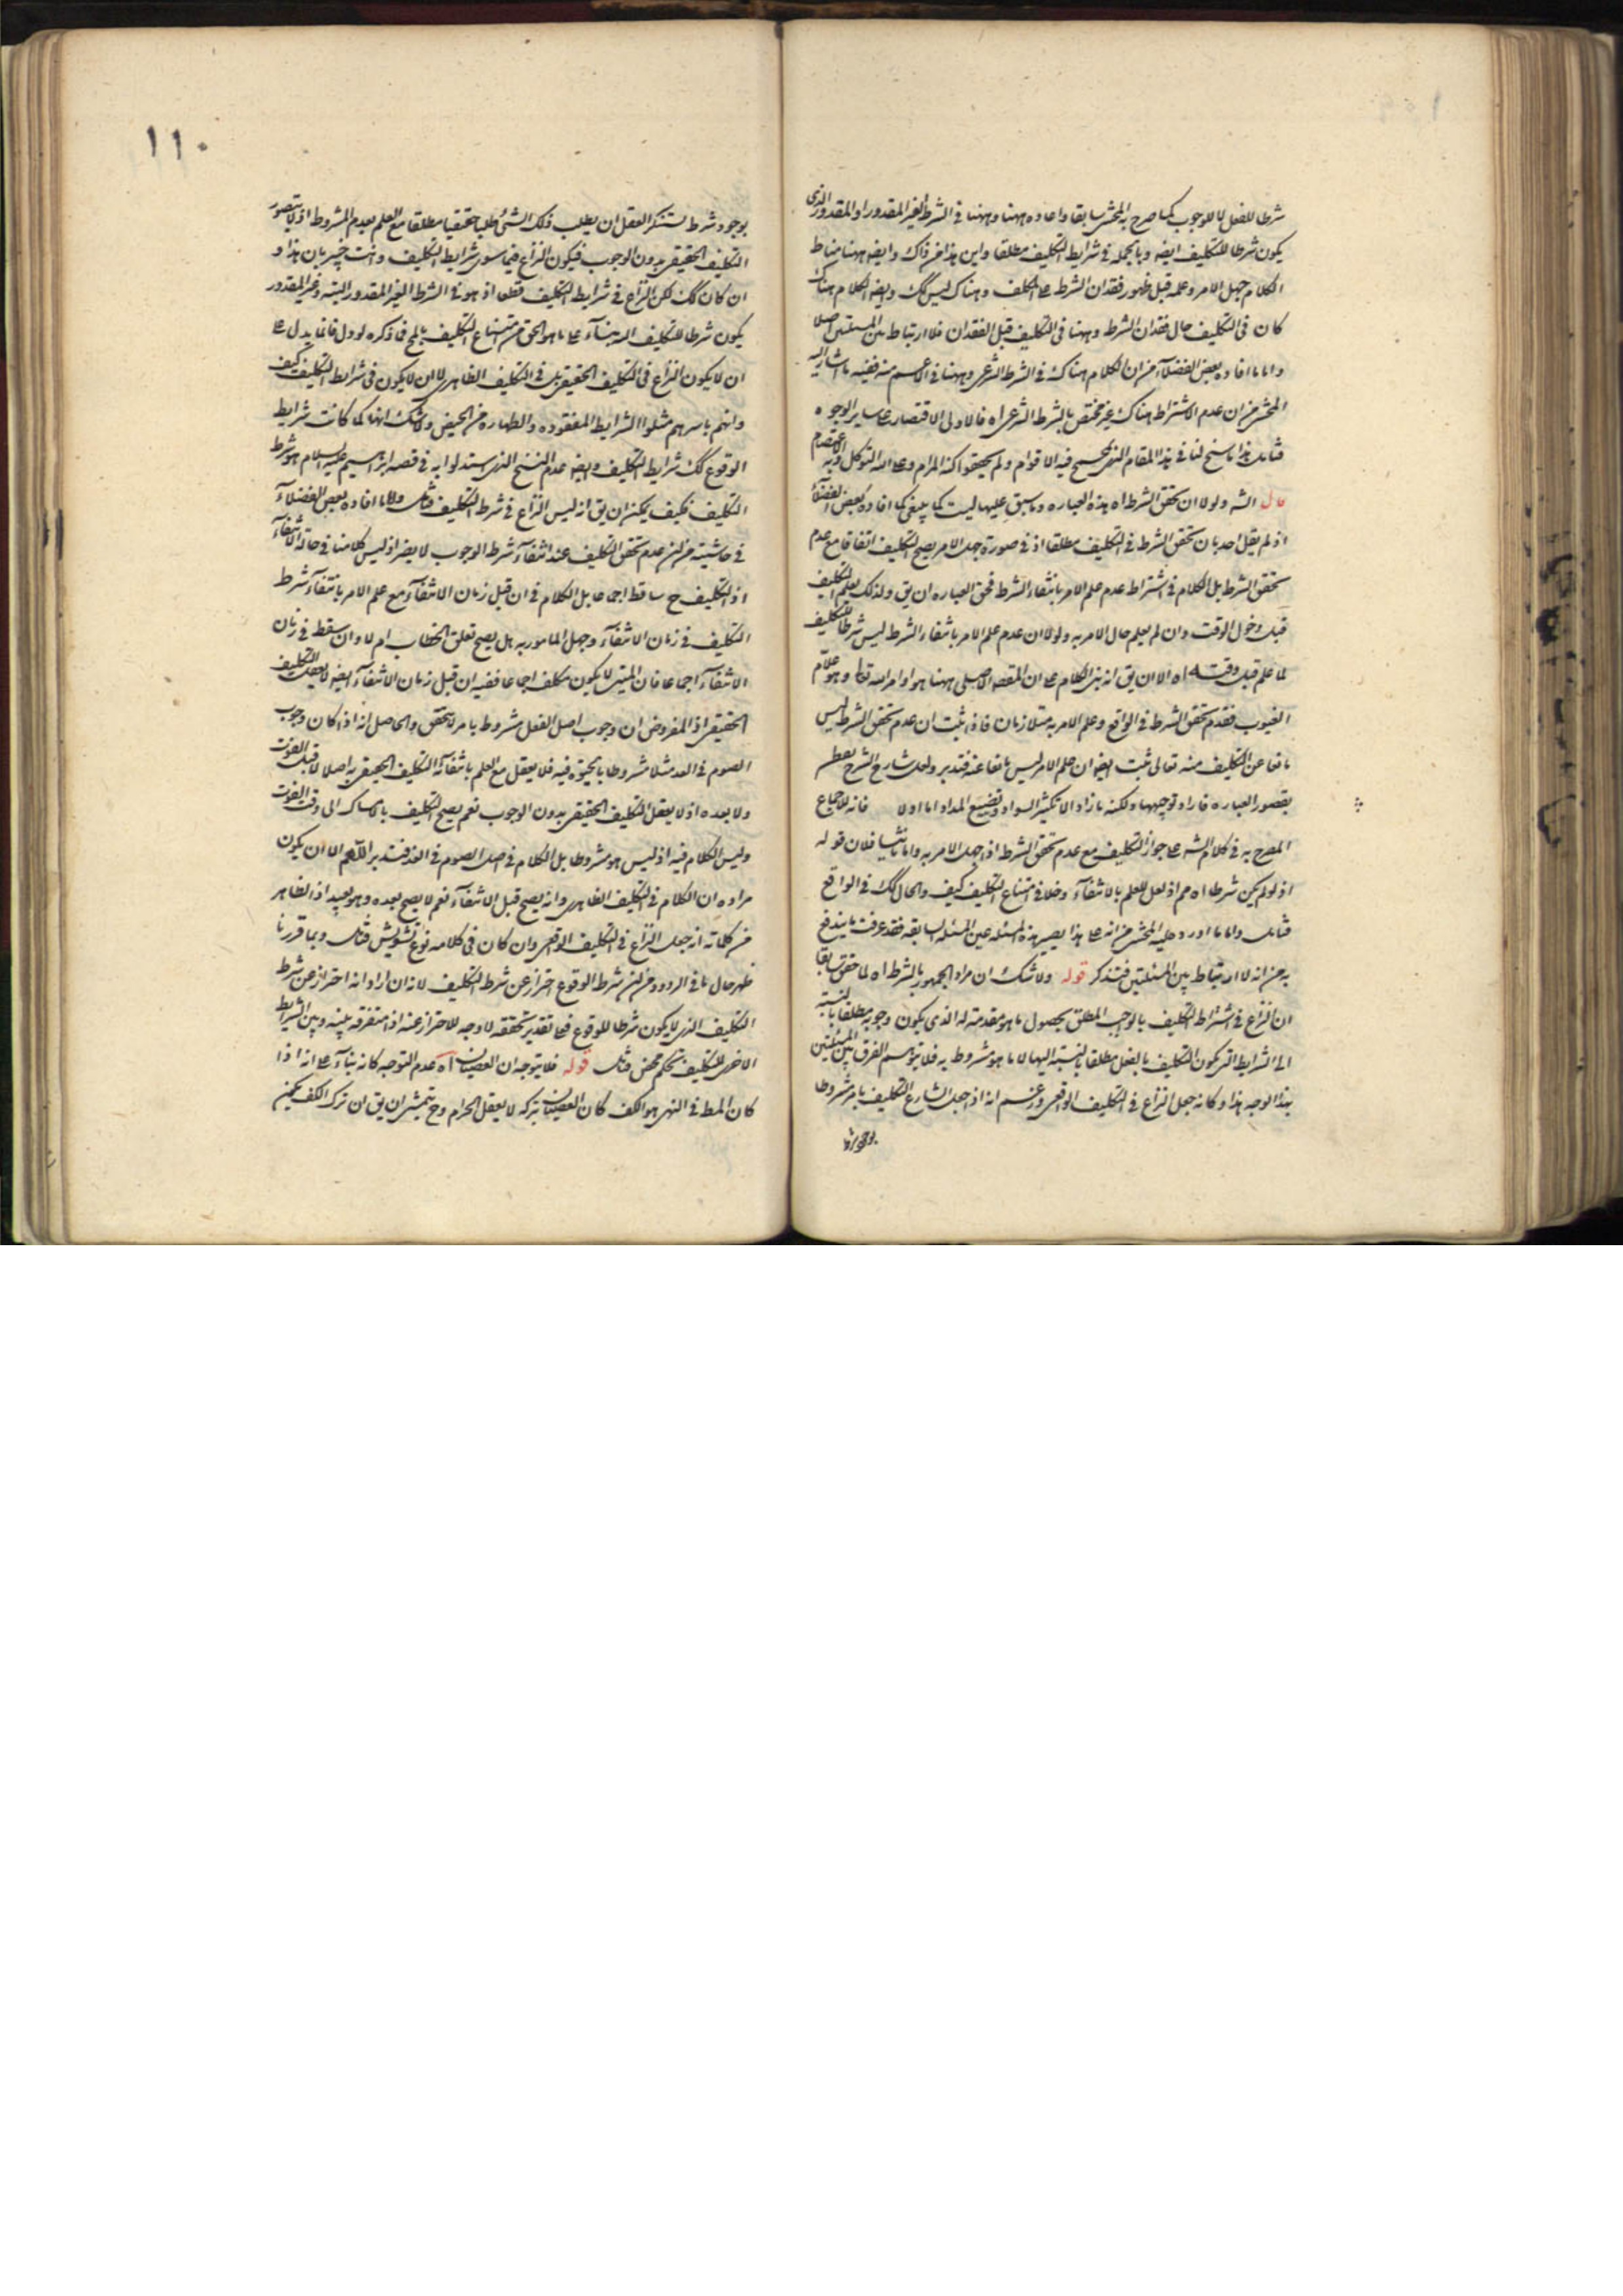 شرطا للفعل لا للوجوب كما صرح به المحشى سابقا واعاده ههنا وههنا فى الشرط الغير المقدور او المقدور الذى
يكون شرطا للتكليف ايضه وبالجمله فى شرايط التكليف مطلقا واين هذا من ذاك وايضه ههنا مناط
الكلام جهل الامر وعلمه قبل ظهور فقدان الشرط على المكلف وهناك ليس كك وايضه الكلام هناك
كان فى التكليف حال فقدان الشرط وههنا فى التكليف قبل الفقدان فلا ارتباط بين المسئلتين اصلا
واما ما افاده بعض الفضلآء من ان الكلام هناك فى الشرط الشرعى وههنا فى الاعم منه ففيه ما اشار اليه
المحشى من ان عدم الاشتراط هناك غير مختص بالشرط الشرعى اه فالاولى الاقتصار على ساير الوجوه
فتامل هذا ما سنح لنا فى هذا المقام الذى فيه الاقوام ولم يحققوا كنه المرام وعلى الله التوكل وبه الاعتصام
قال الشه ولولا ان تحقق الشرط اه هذه العباره وما سبق عليها ليست كما ينبغى كما افاده بعض الفضلآء
اذ لم يقل احد بان تحقق الشرط فى التكليف مطلقا اذ فى صورة جهل الامر يصح التكليف اتفاقا مع عدم
تحقق الشرط بل الكلام فى اشتراط عدم علم الامر بانتفاء الشرط فحق العباره ان يق ولذلك يعلم التكليف
قبل دخول الوقت وان لم يعلم حال الامر به ولولا ان عدم علم الامر بانتفاء الشرط ليس شرطا للتكليف
لما علم قبل وقته اه الا ان يق انه بنى الكلام على ان المقصد الاصلى ههنا هو اوامر الله تعا وهو علام
الغيوب فقدم تحقق الشرط فى الواقع وعلم الامر به متلازمان فاذا ثبت ان عدم تحقق الشرط ليس
مانعا عن التكليف منه تعالى ثبت ايضه ان علم الامر ليس مانعا عنه فتدبر ولعل شارح الشرح
بقصور العباره فاراد توجيهها ولكنه ما زاد الا تكثير السواد وتضييع المداد اما اولا فانه للاجماع
المصرح به فى كلام الشه على جواز التكليف مع عدم تحقق الشرط اذا جهل الامر به واما ثانيا فلان قوله
اذ لو لم يكن شرطا اه مم اذ لعل للعلم بالانتفآء دخلا فى امتناع التكليف كيف والحال كك فى الواقع
فتامل واما ما اورد عليه المحشى من انه على هذا يصير هذه المسئله عين المسئله السابقه فقد عرفت ما يندفع
به من انه لا ارتباط بين المسئلتين فتذكر قوله ولا شك ان مراد الجمهور بالشرط اه لما حقق سابقا
ان النزاع فى اشتراط التكليف بالواجب المطلق بحصول ما هو مقدمة له الذى يكون وجوبه مطلقا بالنسبه
الى الشرايط التى يكون التكليف بالفعل مطلقا بالنسبة اليها لا ما هو مشروط به فلا يتوسم الفرق بين المسئلتين
بهذا الوجه هذا وكانه جعل النزاع فى التكليف الواقعى وزعم انه اذا جعل الشارع التكليف بامر مشروطا
بوجود شرط
١١٠
بوجود شرط يستنكر العقل ان يطلب ذلك الشئ طلبا حقيقيا مطلقا مع العلم بعدم المشروط اذ لا يتصور
التكليف الحقيقى بدون الوجوب فيكون النزاع فيما سوى شرايط التكليف وانت خبير بان هذا و
ان كان كك لكن النزاع فى شرايط التكليف قطعا اذ هو فى الشرط الغير المقدور البته وغير المقدور
يكون شرطا للتكليف البته بنآء على ما هو الحق من امتناع التكليف بالمح فما ذكره لو دل فانما يدل على
ان لا يكون النزاع فى التكليف الحقيقى بل فى التكليف الظاهرى لا ان لا يكون فى شرايط التكليف كيف
وانهم باسرهم مثلوا الشرايط المفقوده والطهاره من الحيض ولا شك انها كما كانت شرايط
الوقوع كك شرايط التكليف وايضه عدم النسخ الذى استدلوا به فى قصه ابراهيم عليه السلام هو شرط
التكليف فكيف يمكن ان يق انه ليس النزاع فى شرط التكليف فتامل واما ما افاده بعض الفضلآء
فى حاشيته من ان عدم تحقق التكليف عند انتفآء شرط الوجوب لا يضر اذ ليس كلامنا فى حالة الانتفآء
اذ التكليف ح ساقط اجماعا بل الكلام فى ان قبل زمان الانتفآء مع علم الامر بانتفآء شرط
التكليف فى زمان الانتفآء وجهل المامور به هل يصح تعلق الخطاب ام لا وان سقط فى زمان
الانتفآء اجماعا فان الميت لا يكون مكلف اجماعا ففيه ان قبل زمان الانتفآء ايضه لا يعقل التكليف
الحقيقى اذ المفروض ان وجوب اصل الفعل مشروط بامر لا يتحقق والحاصل انه اذا كان وجوب
الصوم فى الغد مثلا مشروطا بالحيوة فيه فلا يعقل مع العلم بانتفائه التكليف الحقيقى به اصلا لا قبل الفوت
ولا بعده اذ لا يعقل التكليف الحقيقى بدون الوجوب نعم يصح التكليف بالامساك الى وقت الفوت
وليس الكلام فيه اذ ليس هو مشروطا بل الكلام فى اصل الصوم فى الغد فتدبر اللهم الا ان يكون
مراده ان الكلام فى التكليف الظاهرى وانه يصح قبل الانتفآء نعم لا يصح بعده وهو بعيد اذ الظاهر
من كلماته انه جعل النزاع فى التكليف الواقعى وان كان فى كلامه نوع تشويش فتامل وبما قررنا
ظهر حال ما فى الردود من ان شرط الوقوع احتراز عن شرط التكليف لانه ان اراد انه احتراز عن شرط
التكليف الذى لا يكون شرطا للوقوع فعلى تقدير تحققه لا وجه للاحتراز عنه اذ التفرقه بينه وبين الشرايط
الاخرى للتكليف تحكم محض فتامل قوله فلا يتوجه ان العصيان اه عدم التوجه كانه بنآء على انه اذا
كان المط فى النهى هو الكف كان العصيان بتركه لا بفعل الحرام وح يتمشى ان يق ان ترك الكف يمكن